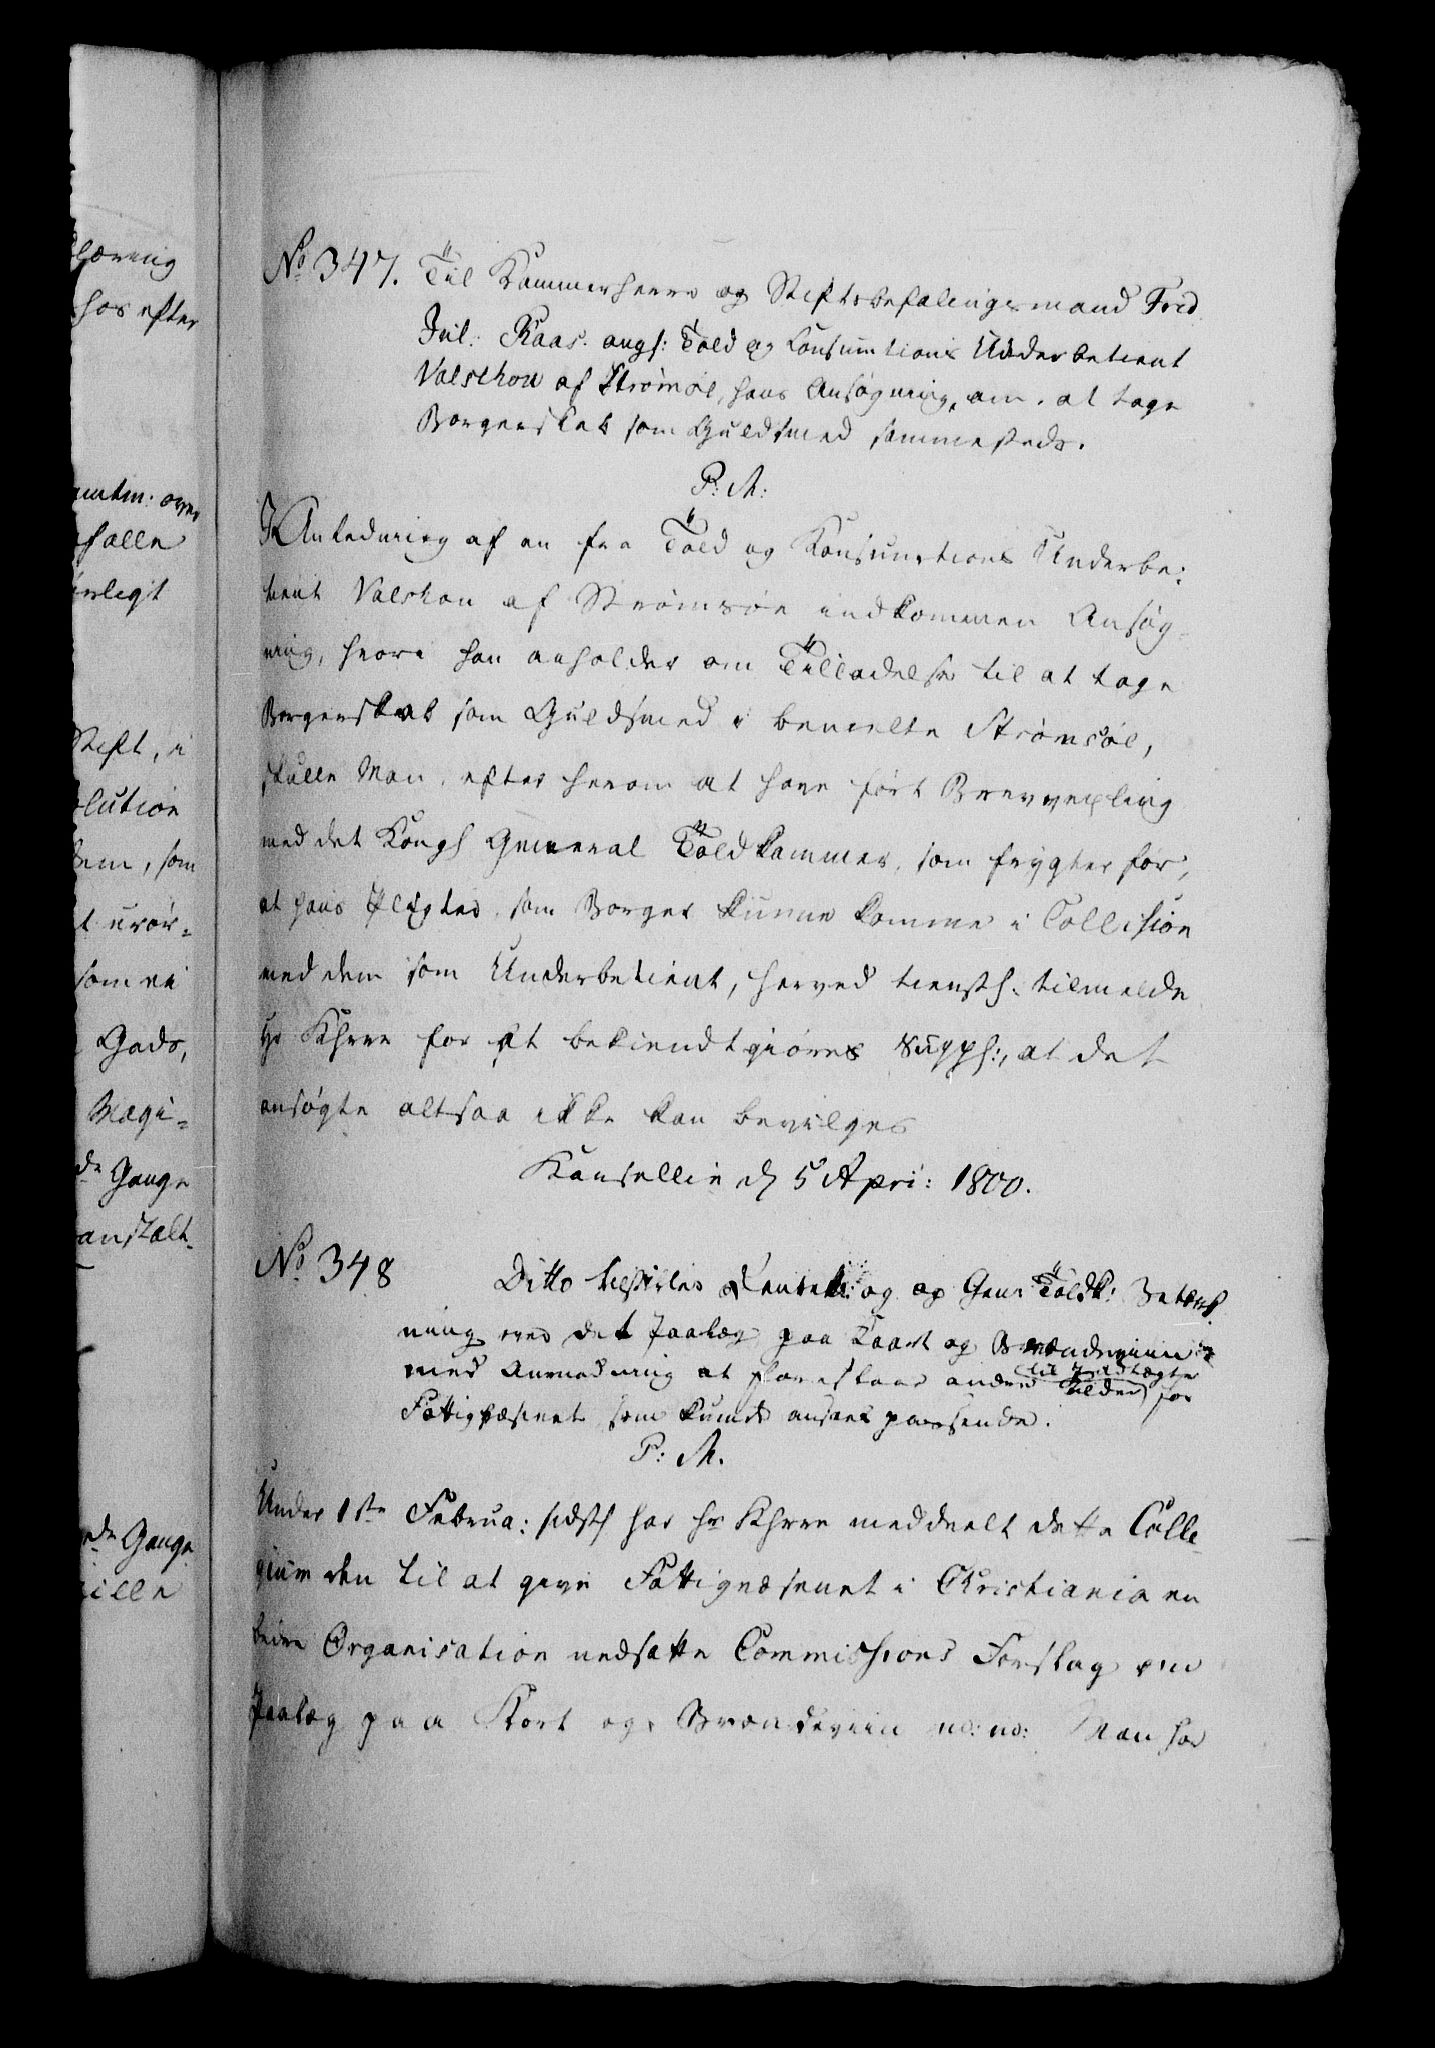 læring
hos efter
amtm: over
falle
ørligt
Stift, i
olution
dem, som
t urør-
som ei
Gads,
Magi-
de Gange
anstalt-
de Gange
ville
No 347. Til Kammerherre og Stiftsbefalingsmand Fred
Jul: Kaas. angl: Told og Consumtions Underbetient
Valskou af Strømsøe, hans Ansøgning, om at tage
Borgerskab som Guldsmed sammesteds.
P: M:
I Anledning af en fra Told og Konsumtions Underbe:
tient Valskou af Strømsøe indkommen Ansøg-
ning, hvori han anholder om Tilladelse til at tage
Borgerskab som Guldsmed i bemelte Strømsøe,
skulle Man, efter herom at have ført Brevvexling
med det Kongl General Toldkammer, som frygter for,
at hans Pligter som Borger kunne komme i Collision
med dem som Underbetient, herved tienstl. tilmelde
Hr Khrre for at bekiendtgiøres Suppl:, at det
ansøgte altsaa ikke kan bevilges
Kancellie d 5 Apri: 1800.
No 348 Ditto tilstiles Rentek: og Genr Toldk: Betænk
ning over det Paalæg paa Kaart og Brændeviin
med Anmodning at foreslaae andre Kilder for
til Indtægter
Fattigvæsenet som kunde ansees passende.
P: M.
Under 1ste Februa: sidstl har Hr Khrre meddeelt dette Colle-
gium den til at give Fattigvæsenet i Christiania en
bedre Organisation nedsatte Commissions Forslag om
Paalæg paa Kort og Brændeviin m: m: Man har